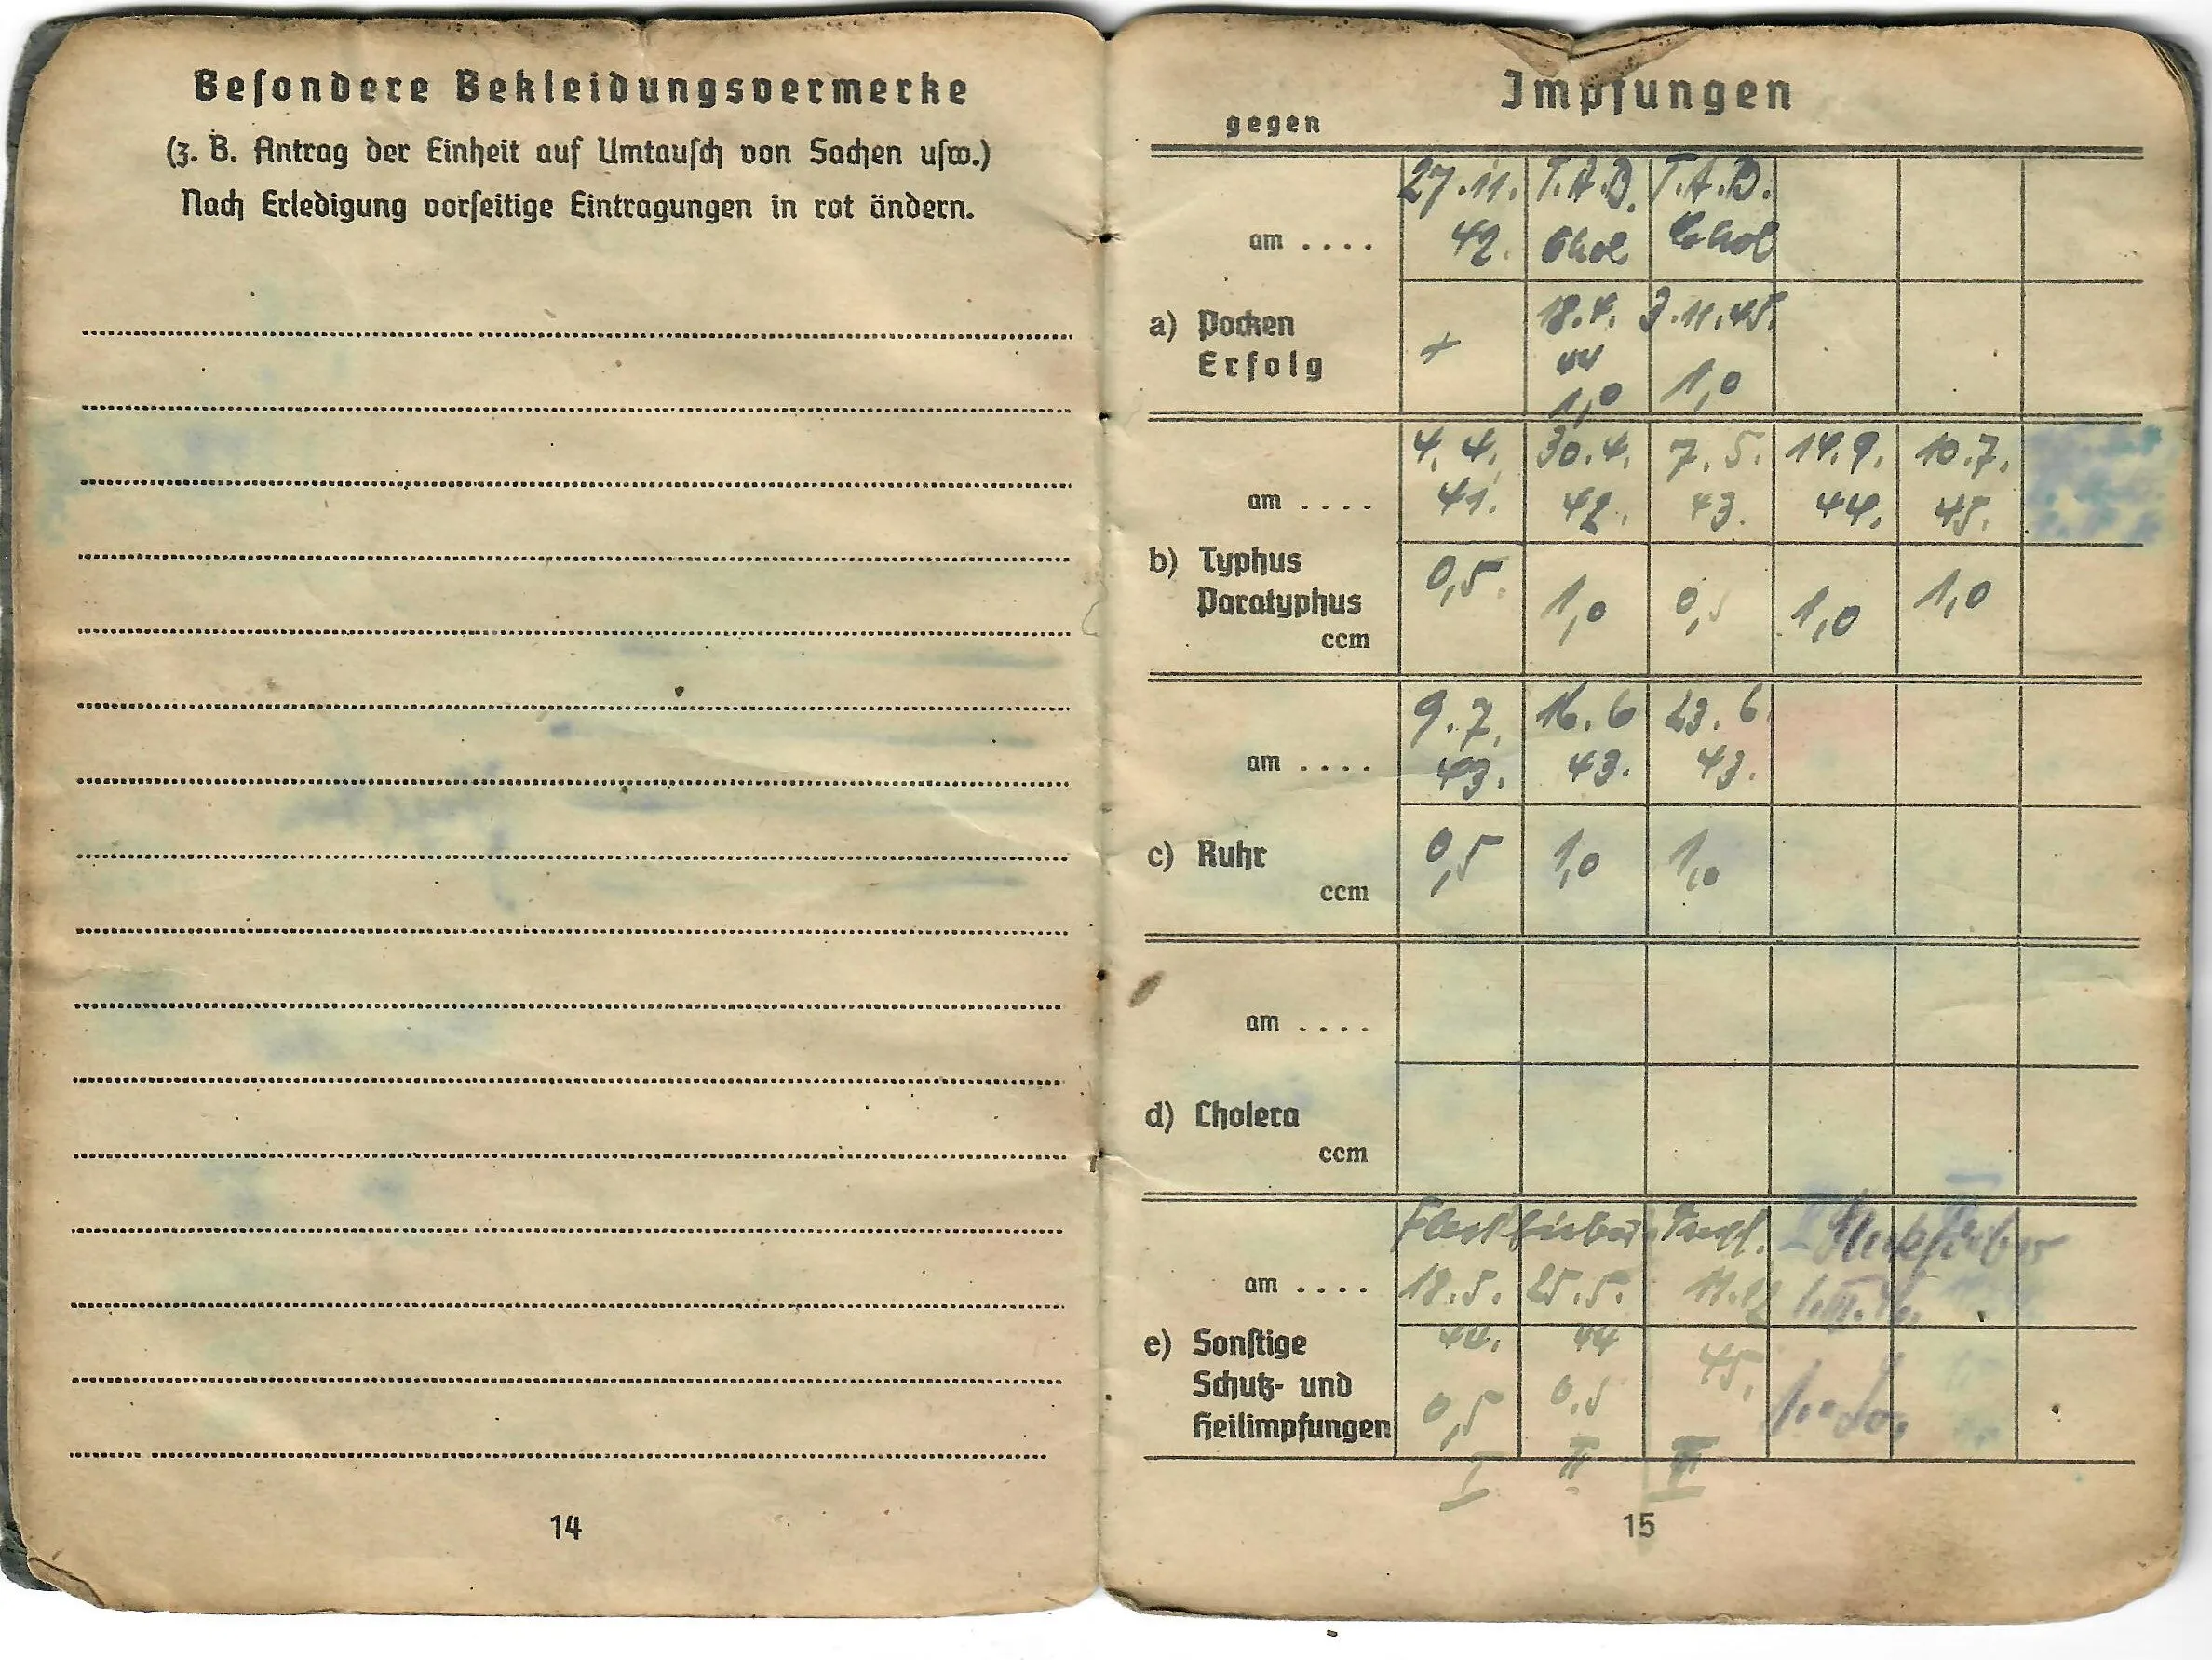 Besondere Bekleidungsvermerke
(z. B. Antrag der Einheit auf Umtausch von Sachen usw.)
Nach Erledigung vorseitige Eintragungen in rot ändern.
14
Impfungen
gegen
27.11. T.A.B. T.A.B.
am .... 42. Chol Chol
a) Pocken 18.4. 3.11.45.
Erfolg + 44
1,0 1,0
4.4. 30.4. 7.5. 14.9. 10.7.
am .... 41. 42. 43. 44. 45.
b) Typhus 0,5
Paratyphus 1,0 0,5 1,0 1,0
ccm
9.7. 16.6 23.6
am .... 43. 43. 43.
c) Ruhr 0,5 1,0 1,0
ccm
am ....
d) Cholera
ccm
am .... 18.5. 25.5.
e) Sonstige 44. 44
Schutz- und 45.
Heilimpfungen 0,5 0,5
I II III
15